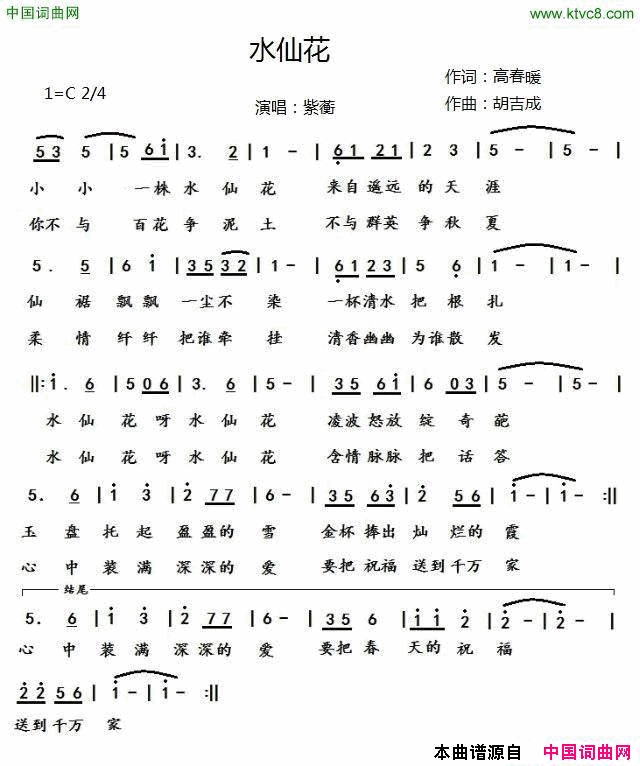 中国词曲网 www.ktvc8.com
水仙花
作词：高春暖
1=C 2/4
演唱：紫蘅 作曲：胡吉成
5 3 5 | 5 6 i | 3. 2 | 1 - | 6 1 2 1 | 2 3 | 5 - | 5 - |
小 小 一株 水 仙 花 来自 遥远 的 天 涯
你不 与 百花 争 泥 土 不与 群英 争 秋 夏
5. 5 | 6 i | 3 5 3 2 | 1 - | 6 1 2 3 | 5 6 | 1 - | 1 - |
仙 裾 飘飘 一尘 不 染 一杯 清水 把 根 扎
柔 情 纤纤 把谁 牵 挂 清香 幽幽 为谁 散 发
||: i. 6 | 5 0 6 | i. 6 | 5 - | 3 5 6 i | 6 0 3 | 5 - | 5 - |
水 仙 花 呀 水 仙 花 凌波 怒放 绽 奇 葩
水 仙 花 呀 水 仙 花 含情 脉脉 把 话 答
5. 6 | i 3 | 2 7 7 | 6 - | 3 5 6 3 | 2 5 6 | i - | i - :||
玉 盘 托 起 盈 盈的 雪 金杯 捧出 灿 烂的 霞
心 中 装 满 深 深的 爱 要把 祝福 送到 千万 家
结尾
5. 6 | i 3 | 2 7 7 | 6 - | 3 5 6 | i i 2 | 2 - | 2 - |
心 中 装 满 深 深的 爱 要把 春 天的 祝 福
2 2 5 6 | i - | i - :||
送到 千万 家
本曲谱源自 中国词曲网